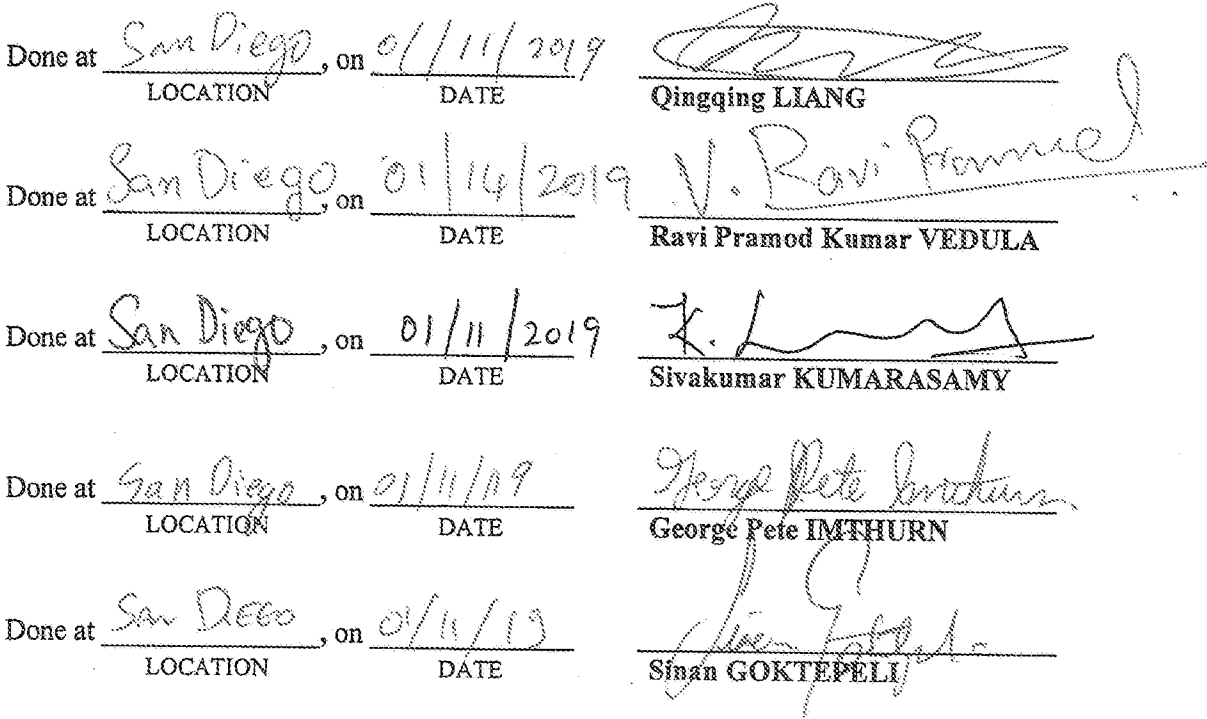 Done at San Diego, on 01/11/2019
LOCATION DATE Qingqing LIANG
Done at San Diego, on 01/14/2019 V. Ravi Pramod
LOCATION DATE Ravi Pramod Kumar VEDULA
Done at San Diego, on 01/11/2019 K.
LOCATION DATE Sivakumar KUMARASAMY
Done at San Diego, on 01/11/19 George Pete Imthurn
LOCATION DATE George Pete IMTHURN
Done at San DIEGO, on 01/11/19 Sinan Goktepeli
LOCATION DATE Sinan GOKTEPELI